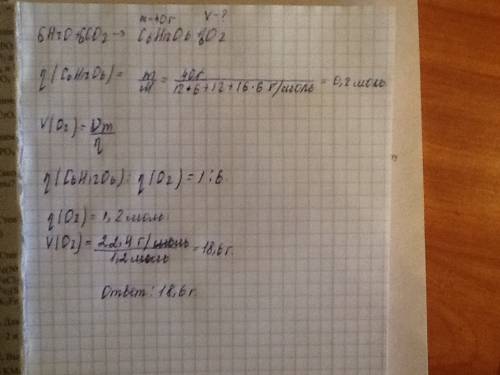 m=40г V-?
6H2O+6CO2→ C6H12O6+6O2
η(C6H12O6)= m/m = 40г/12•6+12+16•6 г/моль = 0,2 моль
V(O2)=Vm/η
η(C6H12O6):η(O2)=1:6
η(O2)=1,2 моль
V(O2)=22,4 г/моль/1,2 моль=18,6г.
Ответ: 18,6г